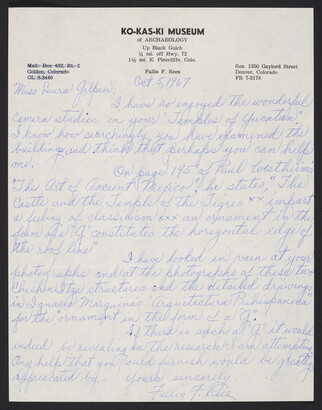 KO-KAS-KI MUSEUM
of ARCHAEOLOGY
Up Black Gulch
¼ mi. off Hwy. 72
1½ mi. E. Pinecliffe, Colo.
Mail: Box 452, Rt. 2
Golden, Colorado
Fallie F. Rees
Res. 1350 Gaylord Street
Denver, Colorado
FR. 7-5178
Oct. 5, 1967
Miss Laura Gilpin:
I have so enjoyed the wonderful
camera studies in your "Temples of Yucatan".
I know how searchingly you have examined the
buildings and think that perhaps you can help
me.
On page 195 of Paul Westheim's
"The Art of Ancient Mexico", he states, "The
Castle and the Temple of the Tigers xx impart
a feeling of classicism xx an ornament in the
form of a "G" constitutes the horizontal edge of
the roof line"
I have looked in vain at your
photographs and at the photographs of these two
Chichen Itza structures and the detailed drawings
in Ignacio Marquina's "Arquitectura Prehispanica"
for the "ornament in the form of a "G".
If there is such a "G" it would
indeed be revealing in the research I am attempting.
Any help that you could furnish would be greatly
appreciated by,
Yours sincerely
Fallie F. Rees